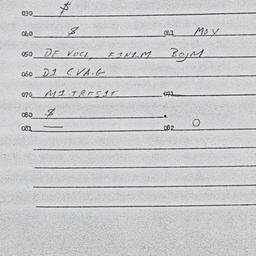 030 $
040 $ 042 MAY
050 DE VOCI, FINLM BOJM
060 DI CVA.G
070 MITRESIT 072
080 $
081 — 082 O